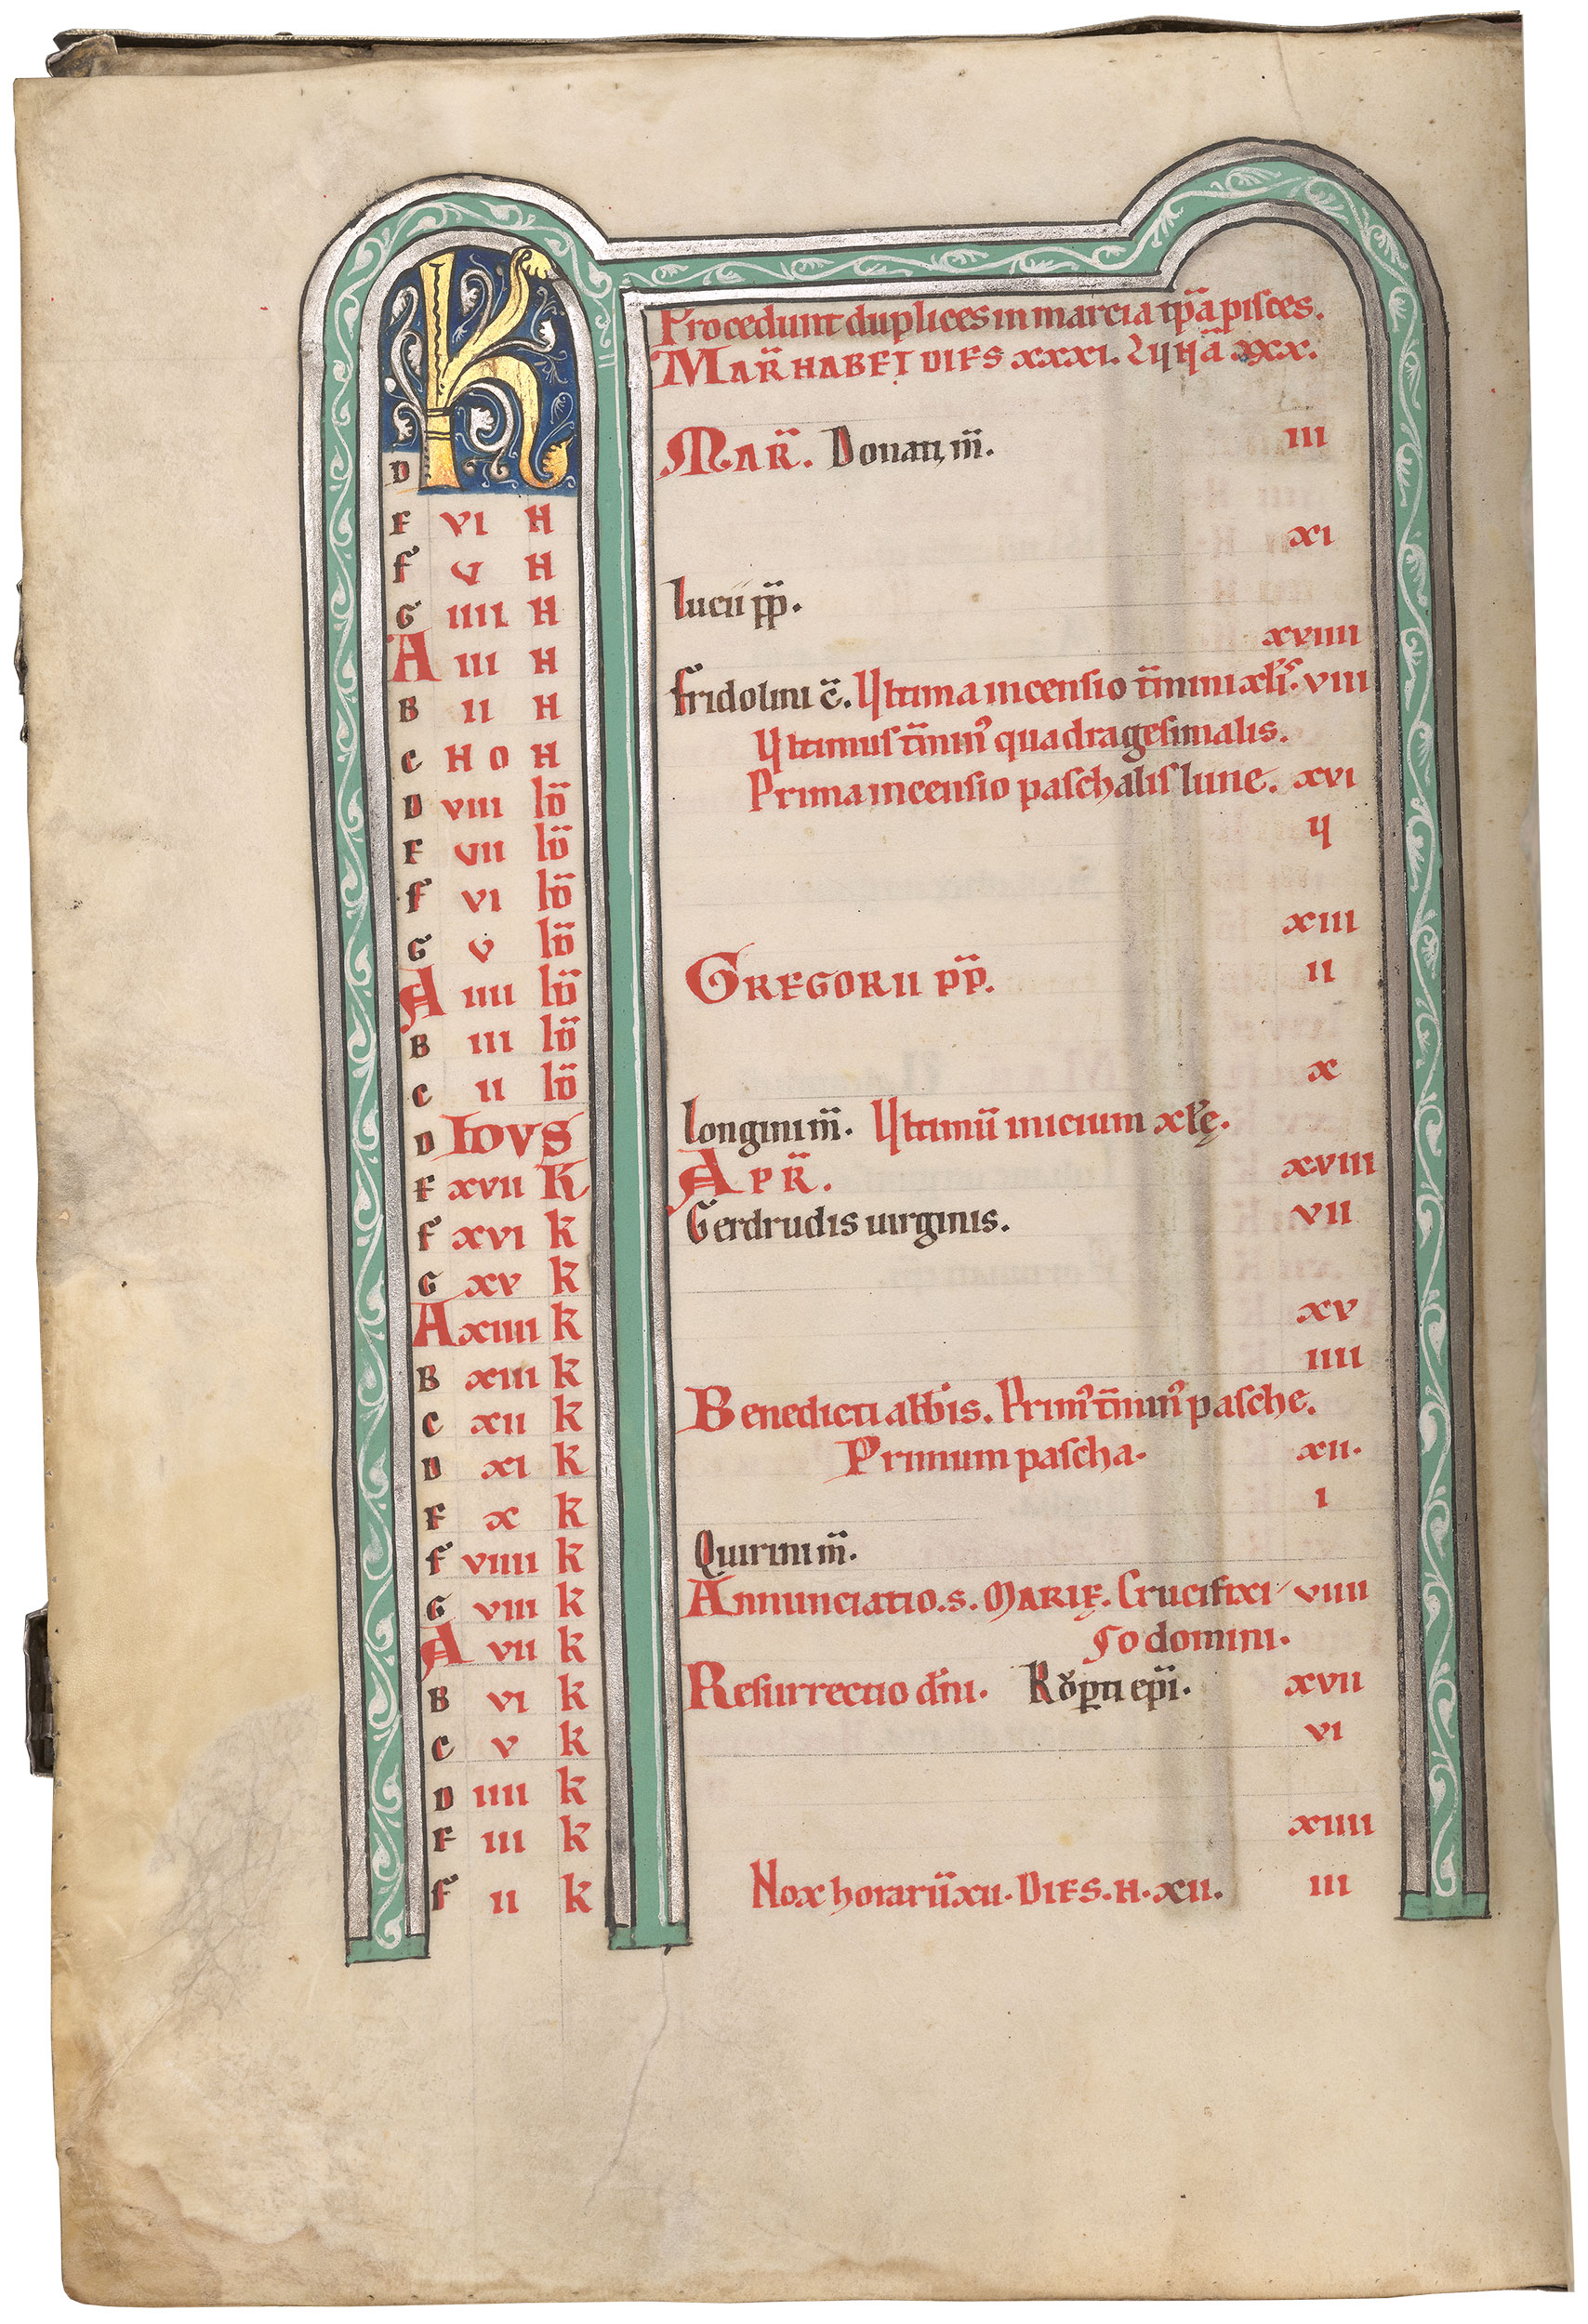 Procedunt duplices in marcia tp̄a pisces.
MAR̄ HABET DIES XXXI. LUNA XXX.
K
D MAR̄. Donati m̄. III
E VI N
F V N XI
G IIII N Lucii pp̄.
A III N XVIIII
B II N Fridolini c̄. Ultima incensio t̄mini xl̄. VIII
C NO N Ultimus t̄min᾽ quadragesimalis.
D VIII Id̄ Prima incensio paschalis lune. XVI
E VII Id̄ V
F VI Id̄
G V Id̄ XIII
A IIII Id̄ GREGORII pp̄. II
B III Id̄
C II Id̄ X
D IDVS Longini m̄. Ultimū inicium xl̄ę.
E XVII K APR̄. XVIII
F XVI K Gerdrudis uirginis. VII
G XV K
A XIIII K XV
B XIII K IIII
C XII K Benedicti abbis. Prim᾽ t̄min᾽ pasche.
D XI K Primum pascha. XII.
E X K I
F VIIII K Quirini m̄.
G VIII K Annunciatio. S. MARIĘ. Crucifixi VIIII
A VII K so domini.
B VI K Resurrectio dn̄i. Rǒpti ep̄i. XVII
C V K VI
D IIII K
E III K XIIII
F II K Nox horarū XII. DIES. H. XII. III